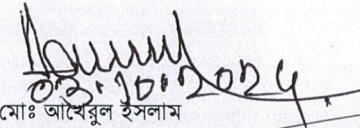 ০৩.১০.২০২৪
মোঃ আখেরুল ইসলাম